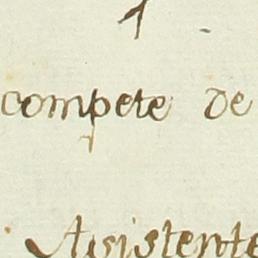 1
compete de
Asistente